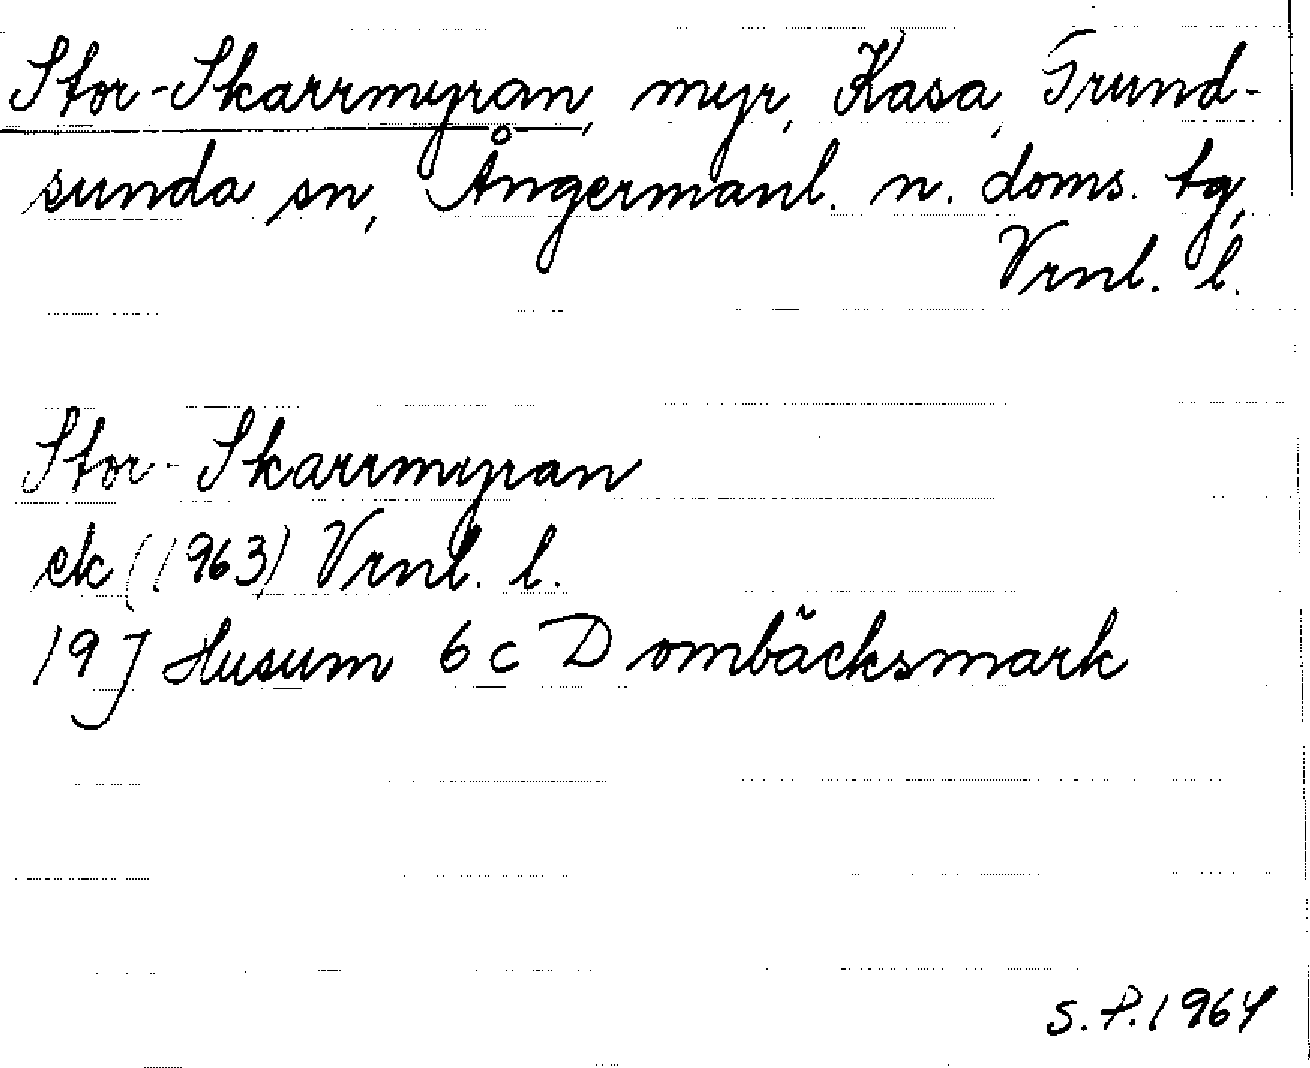 Stor-Skarrmyran, myr, Kasa, Grund-
sunda sn, Ångermanl. n. doms. tg,
Vrnl. l.
Stor-Skarrmyran
ek (1963) Vrnl. l.
19J Husum 6 c Dombäcksmark
S. P. 1964